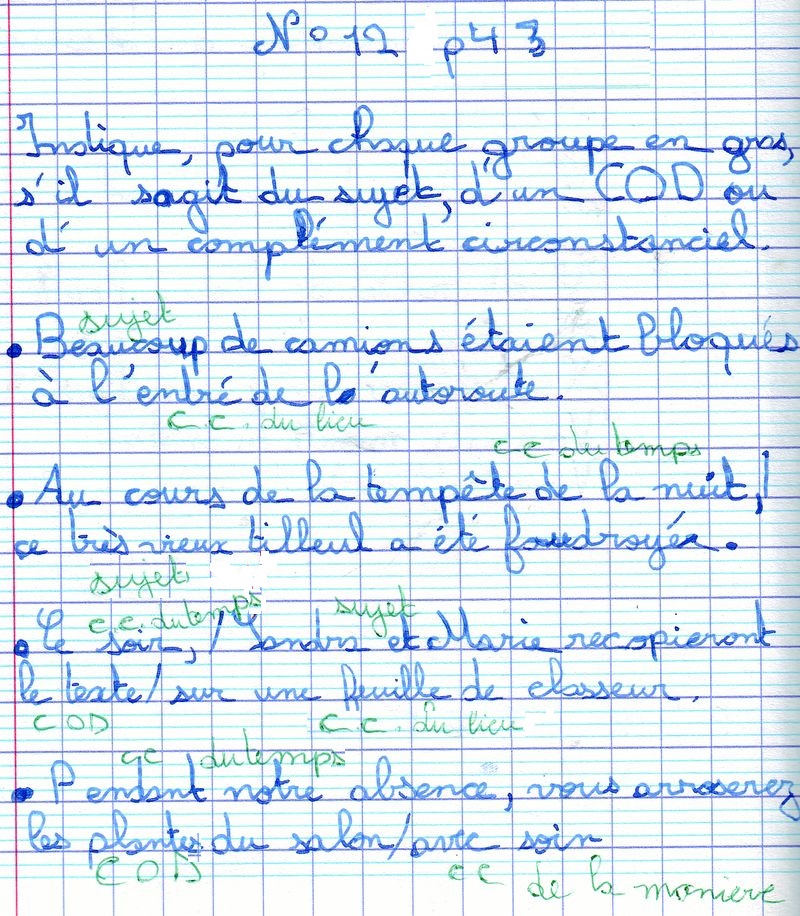 N° 12 p 43
Indique, pour chaque groupe en gras,
s'il sagit du sujet, d'un COD ou
d'un complément circonstanciel.
sujet
• Beaucoup de camions étaient bloqués
à l'entré de l'autoroute.
C.C. du lieu
CC du temps
• Au cours de la tempête de la nuit, /
ce très vieux tilleul a été foudroyé.
sujet
C.C. du temps sujet
• Ce soir, / Sandra et Marie recopieront
le texte / sur une feuille de classeur.
COD C.C. du lieu
CC du temps
• Pendant notre absence, vous arroserez
les plantes du salon / avec soin
COD CC de la maniere